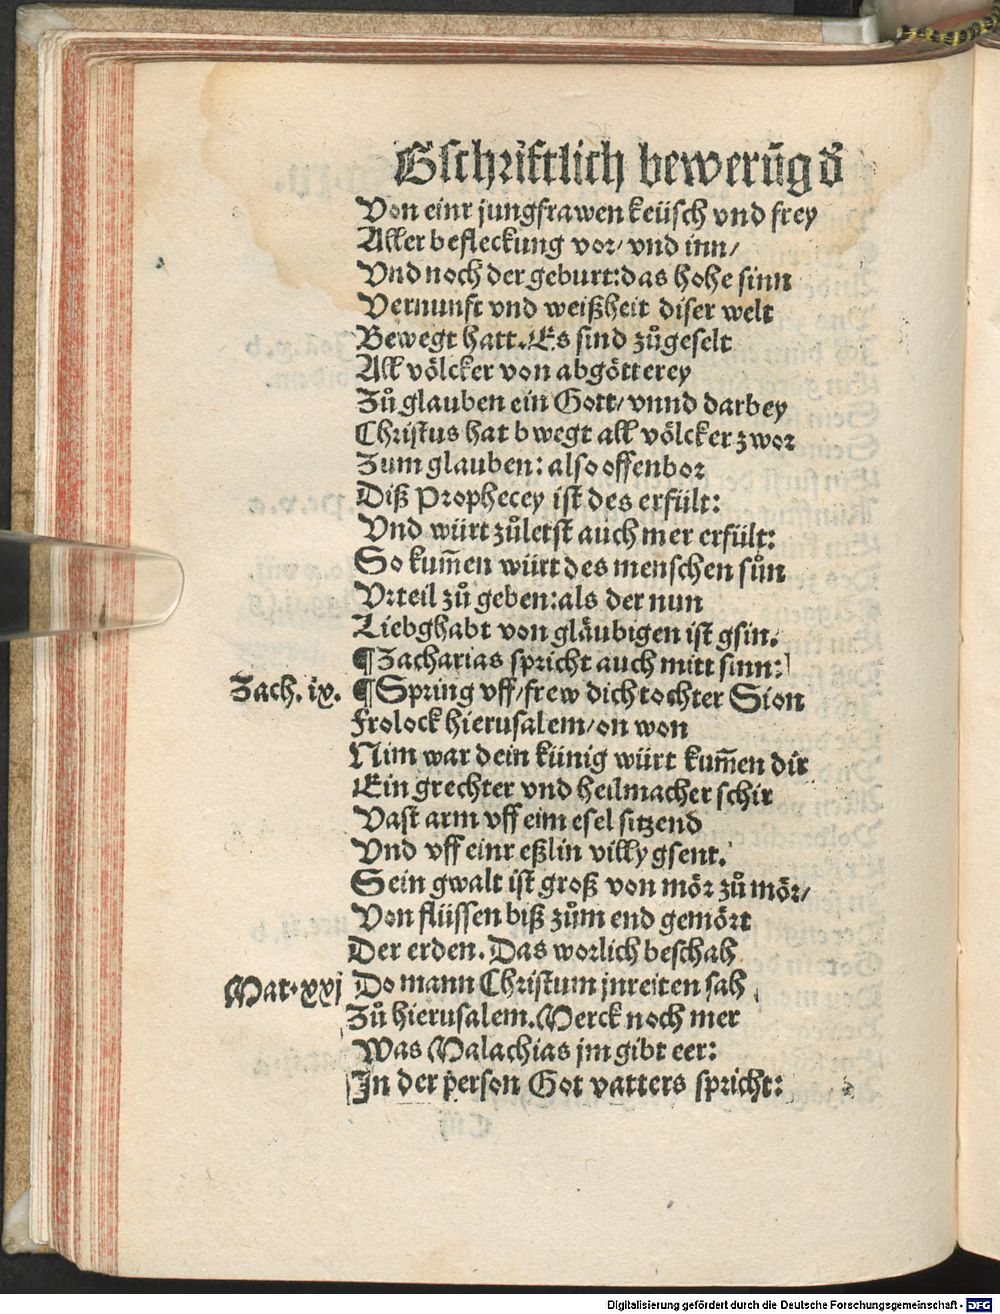 Gschrifftlich bewerūg ď
Von einr jungfrawen keüsch vnd frey
Aller befleckung vor/ vnd inn/
Vnd noch der geburt: das hohe sinn
Vernunft vnd weißheit diser welt
Bewegt hatt. Es sind zůgeselt
All völcker von abgötterey
Zů glauben ein Gott/ vnnd darbey
Christus hat bwegt all völcker zwor
Zum glauben: also offenbor
Diß Prophecey ist des erfült:
Vnd würt zůletst auch mer erfült:
So kum̄en würt des menschen sůn
Vrteil zů geben: als der nun
Liebghabt von gläubigen ist gsin.
¶ Zacharias spricht auch mitt sinn:
Zach. ix. ¶ Spring vff/ frew dich tochter Sion
Frolock hierusalem/ on won
Nim war dein künig würt kum̄en dir
Ein grechter vnd heilmacher schir
Vast arm vff eim esel sitzend
Vnd vff einr eßlin villy gsent.
Sein gwalt ist groß von mör zů mör/
Von flüssen biß zům end gemört
Der erden. Das worlich beschah
Mat. xxj Do mann Christum jnreiten sah
Zů hierusalem. Merck noch mer
Was Malachias jm gibt eer:
In der person Got vatters spricht:
Digitalisierung gefördert durch die Deutsche Forschungsgemeinschaft - DFG